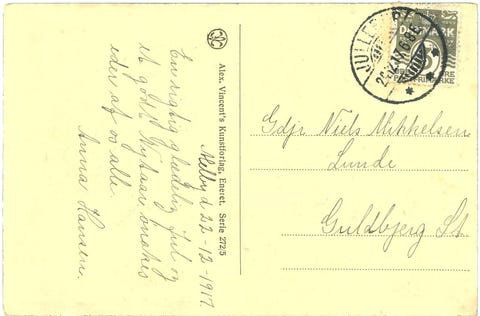 Melby d 22-12-1917.
En rigtig glædelig Jul og
et godt Nytaar ønskes
eder af os alle.
Anna Hansen.
Alex. Vincent's Kunstforlag, Eneret. Serie 272/5
DANMARK
5
Gdjr Niels Mikkelsen
Lunde
Guldbjerg St.